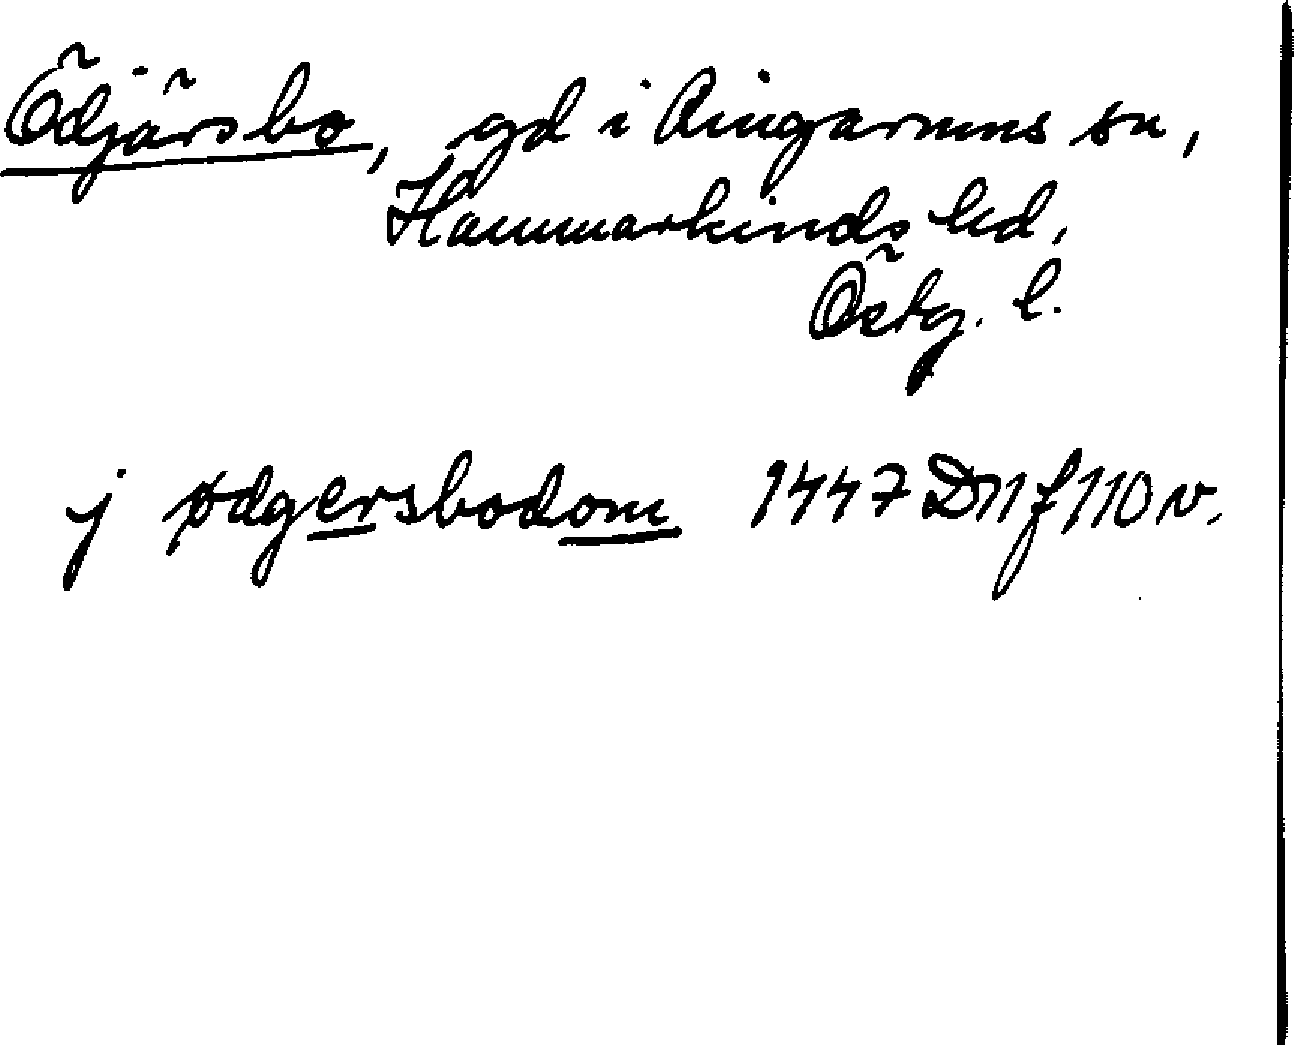 Ödjärsbo, gd i Ringarums sn,
Hammarkinds hd,
Östg. l.
j ødgersbodom 1447 D11 f 110 v.